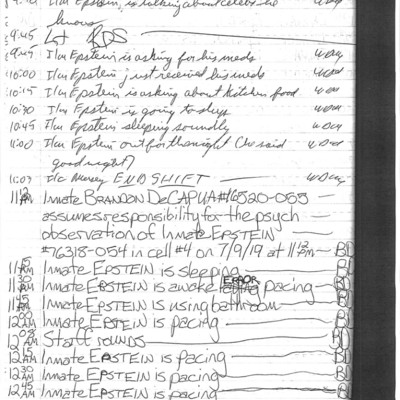 I/m Epstein, is talking about celebs he
knows
9:45 Lt RDS
9:45 I/m Epstein is asking for his meds
10:00 I/m Epstein, just received his meds
10:15 I/m Epstein is asking about kitchen food
10:30 I/m Epstein is going to sleep
10:45 I/m Epstein sleeping soundly
11:00 I/m Epstein out for the night said
goodnight
11:07 END SHIFT
Inmate BRANDON DeCAPUA #
assumes responsibility for the psych
observation of Inmate EPSTEIN
#76318-054 in cell #4 on 7/9/19 at BD
11:15 PM Inmate EPSTEIN is sleeping BD
11:30 PM Inmate EPSTEIN is awake ERROR pacing BD
11:45 PM Inmate EPSTEIN is using bathroom BD
12:00 AM Inmate EPSTEIN is pacing BD
12:08 AM Staff rounds BD
12:15 AM Inmate EPSTEIN is pacing BD
12:30 AM Inmate EPSTEIN is pacing BD
12:45 AM Inmate EPSTEIN is pacing BD